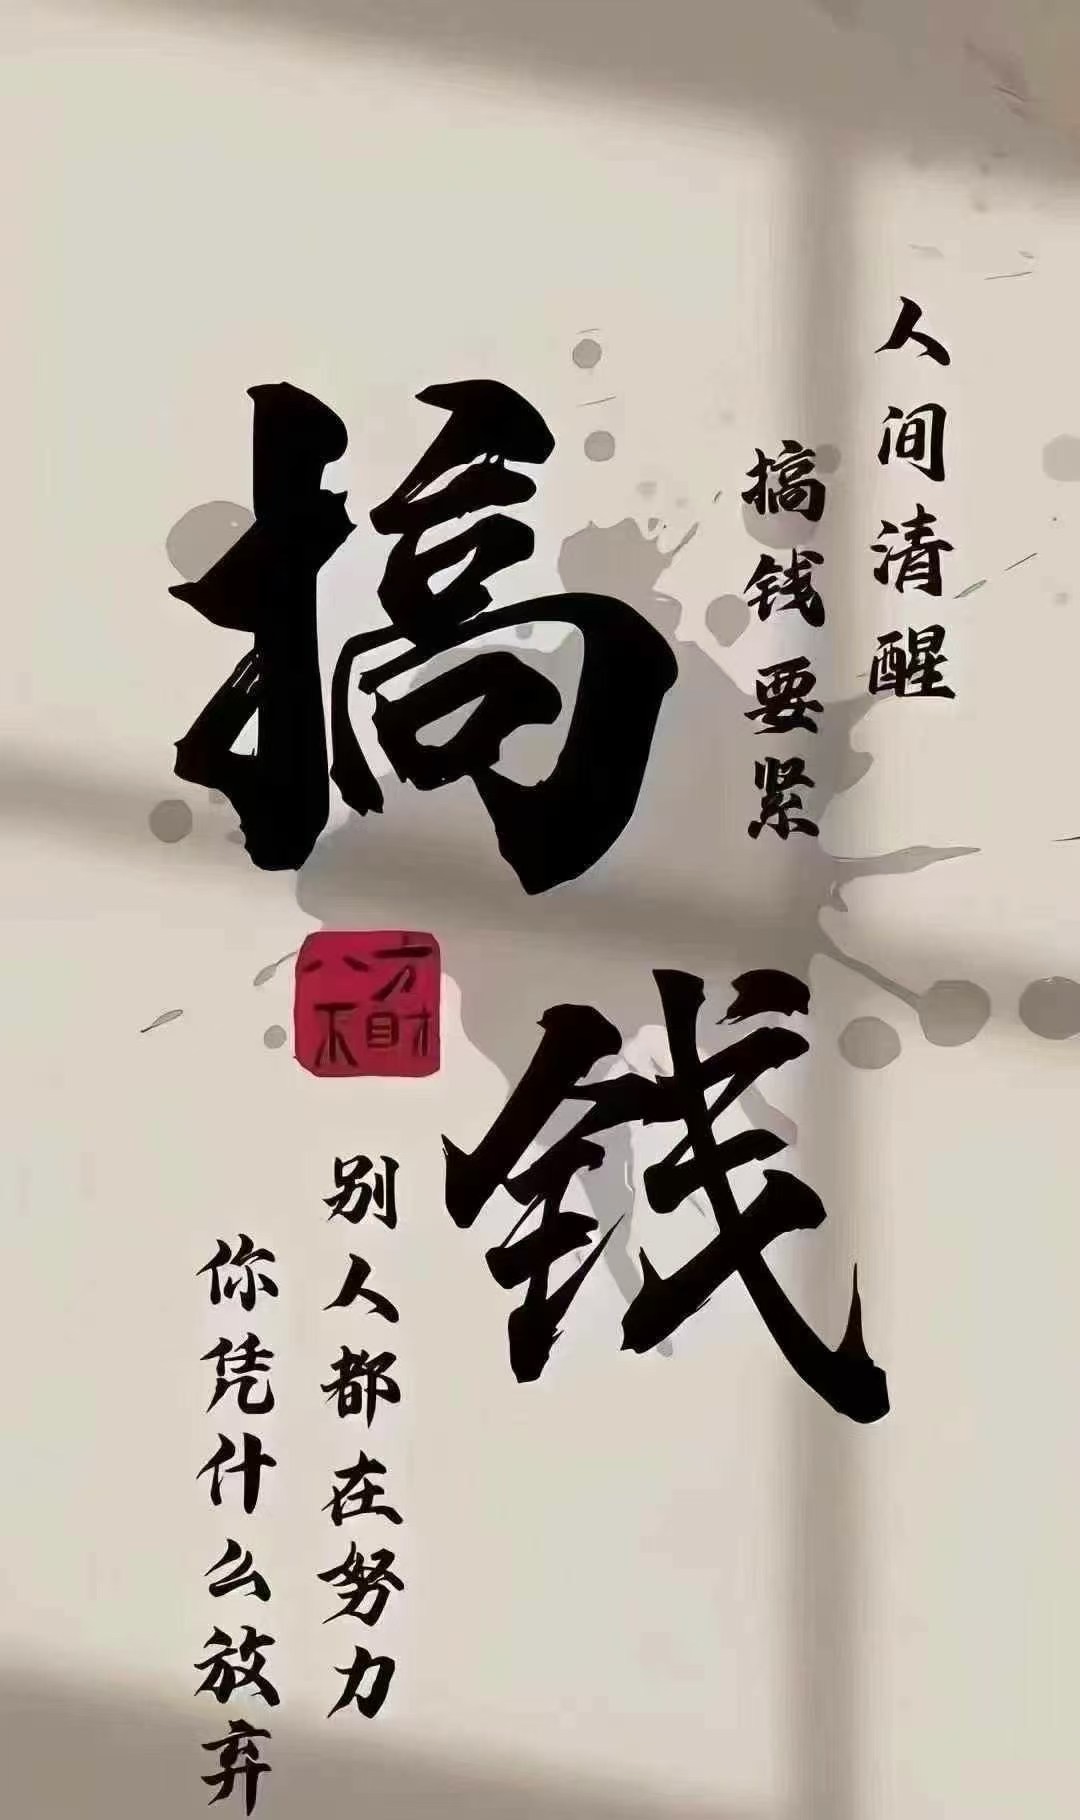 人间清醒
搞钱要紧
搞
钱
八方
不财
别人都在努力
你凭什么放弃